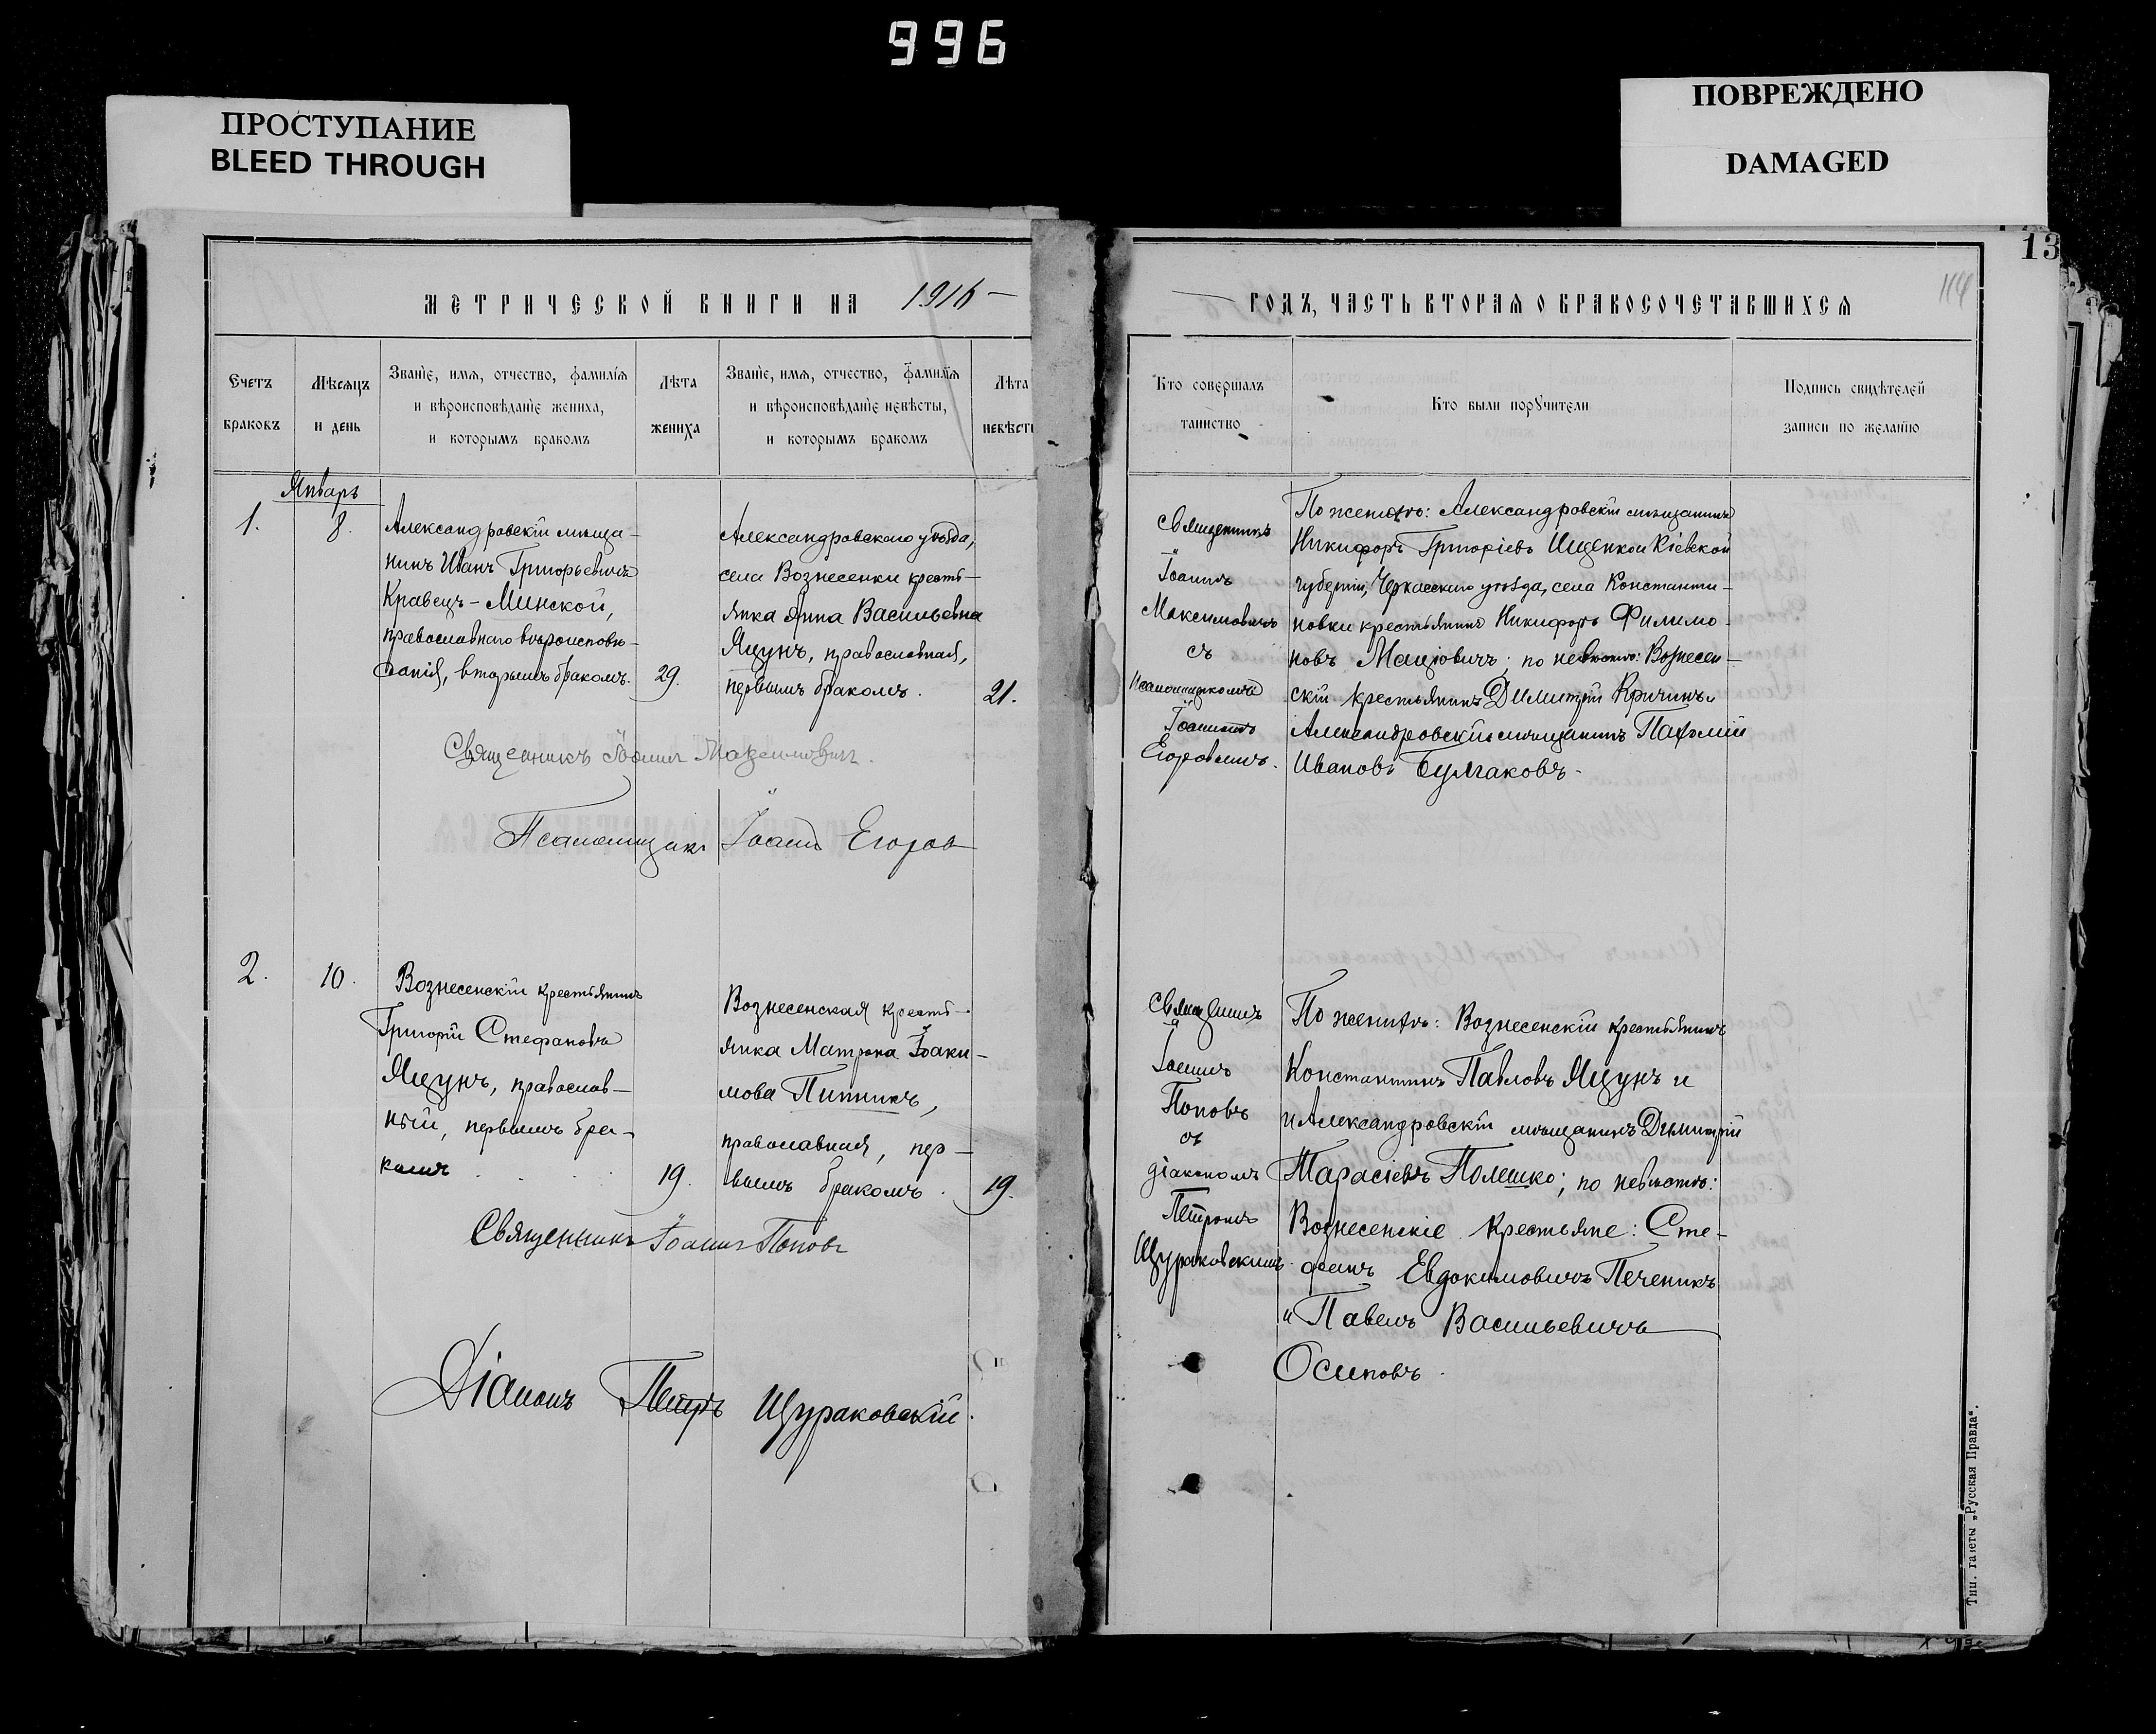 996
ПРОСТУПАНИЕ
BLEED THROUGH
ПОВРЕЖДЕНО
DAMAGED
13
114
МЕТРИЧЕСКОЙ КНИГИ НА 1916 –
Счетъ
браковъ
Мѣсяцъ
и день
Званіе, имя, отчество, фамилія
и вѣроисповѣданіе жениха,
и которымъ бракомъ
Лѣта
жениха
Званіе, имя, отчество, фамилія
и вѣроисповѣданіе невѣсты,
и которымъ бракомъ
Лѣта
невѣсты
Январь
1.
8.
Александровскій мѣща-
нинъ Иванъ Григорьевичъ
Кравецъ-Минской,
православнаго вѣроисповѣ-
данія, вторымъ бракомъ.
29.
Александровскаго уѣзда,
села Вознесенки кресть-
янка Анна Васильевна
Яцунъ, православная,
первымъ бракомъ.
21.
Священникъ Іоаннъ Максимовичъ.
Псаломщикъ Іоаннъ Егоров
2.
10.
Вознесенскій крестьянинъ
Григорій Стефановъ
Яцунъ, православ-
ный, первымъ бра-
комъ
19.
Вознесенская кресть-
янка Матрона Іоаки-
мова Питникъ,
православная, пер-
вымъ бракомъ.
19.
Священникъ Іоаннъ Поповъ
Діаконъ Петръ Щураковскій.
ГОДЪ, ЧАСТЬ ВТОРАЯ О БРАКОСОЧЕТАВШИХСЯ
Кто совершалъ
таинство
Кто были поручители
Подпись свидѣтелей
записи по желанію
Священникъ
Іоаннъ
Максимовичъ
съ
псаломщикомъ
Іоанномъ
Егоровымъ.
По женихѣ: Александровскій мѣщанинъ
Никифоръ Григоріевъ Ищенко и Кіевской
губерніи, Черкасскаго уѣзда, села Константи-
новки крестьянинъ Никифоръ Филимо-
новъ Мацiовичъ; по невѣстѣ: Вознесен-
скій крестьянинъ Димитрій Кричинъ и
Александровскій мѣщанинъ Пахомій
Ивановъ Булгаковъ.
Священникъ
Іоаннъ
Поповъ
съ
діакономъ
Петромъ
Щураковскимъ.
По женихѣ: Вознесенскій крестьянинъ
Константинъ Павловъ Яцунъ и
и Александровскій мѣщанинъ Димитрій
Тарасіевъ Полешко; по невѣстѣ:
Вознесенскіе крестьяне: Сте-
фанъ Евдокимовичъ Печеникъ
и Павелъ Васильевичъ
Осиповъ.
Тип. газеты „Русская Правда“.